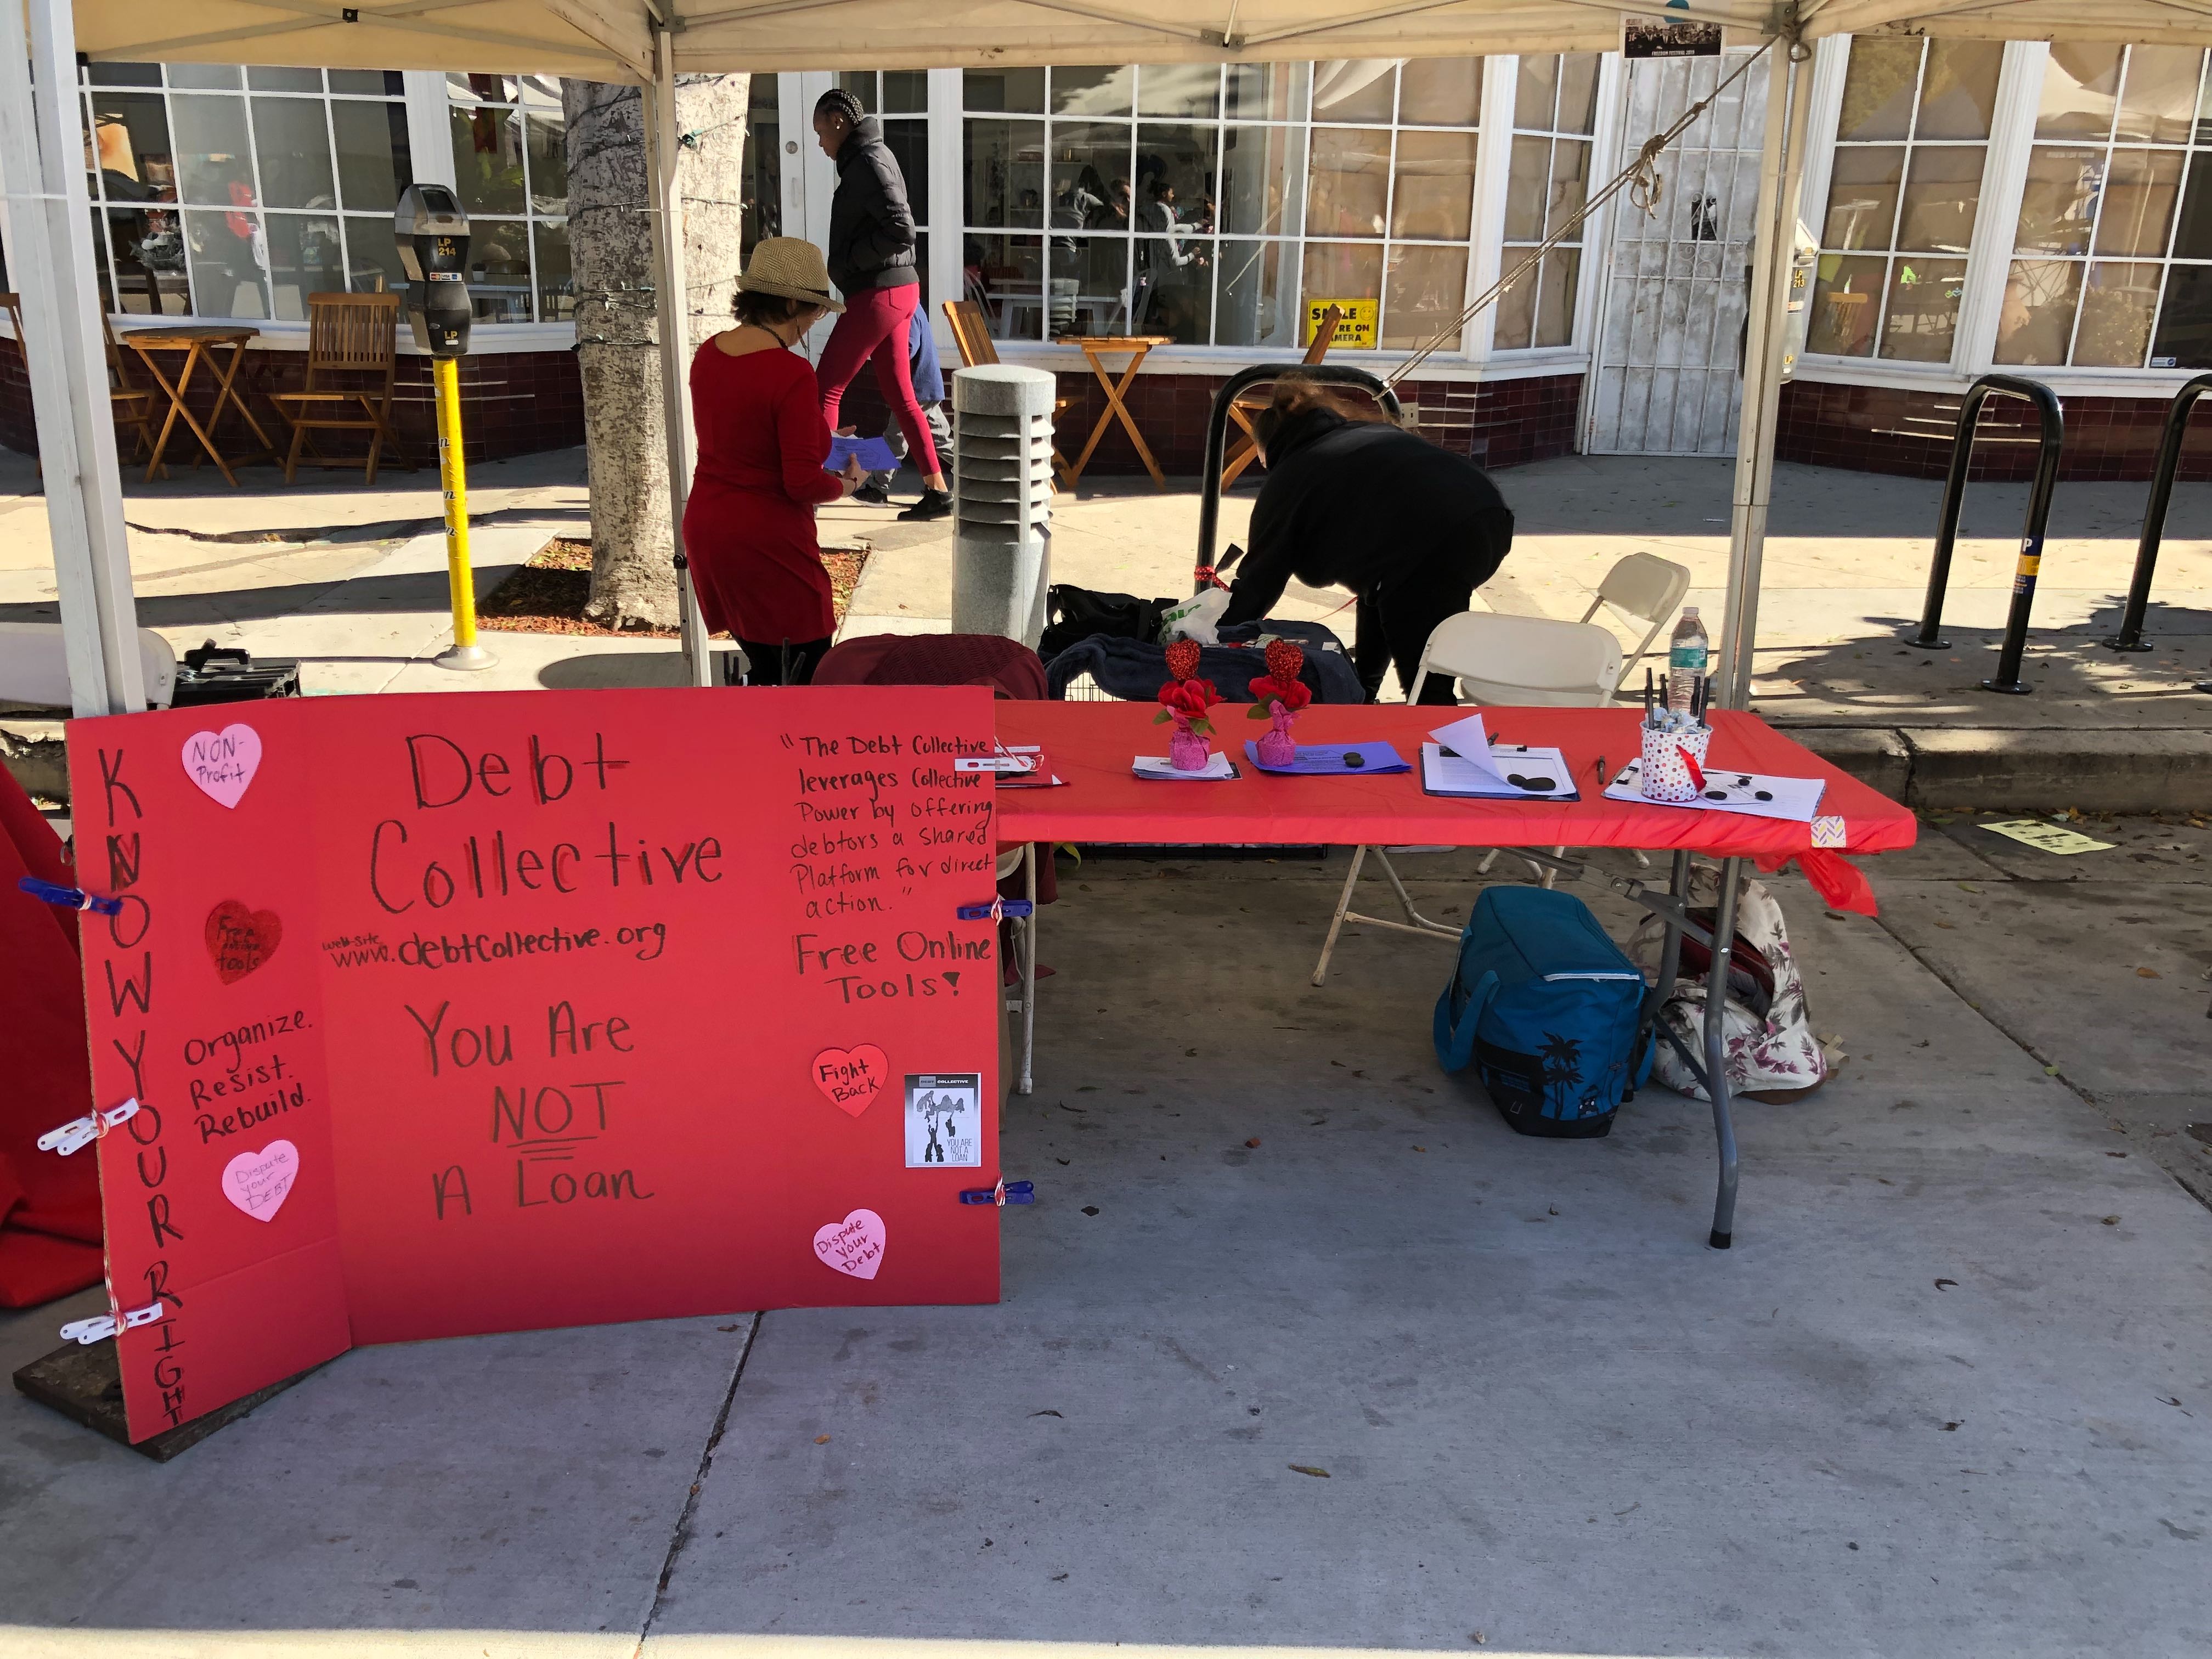 FREEDOM FESTIVAL 2019
LP
214
LP
LP
213
SMILE
YOU'RE ON
CAMERA
KNOW YOUR RIGHT
NON-
Profit
Free
online
tools
Organize.
Resist.
Rebuild.
Dispute
your
DEBT
Debt
Collective
web-site
www.debtCollective.org
You Are
NOT
A Loan
"The Debt Collective
leverages Collective
Power by offering
debtors a Shared
Platform for direct
action."
Free Online
Tools!
Fight
Back
DEBT COLLECTIVE
YOU ARE
NOT A
LOAN
Dispute
Your
Debt